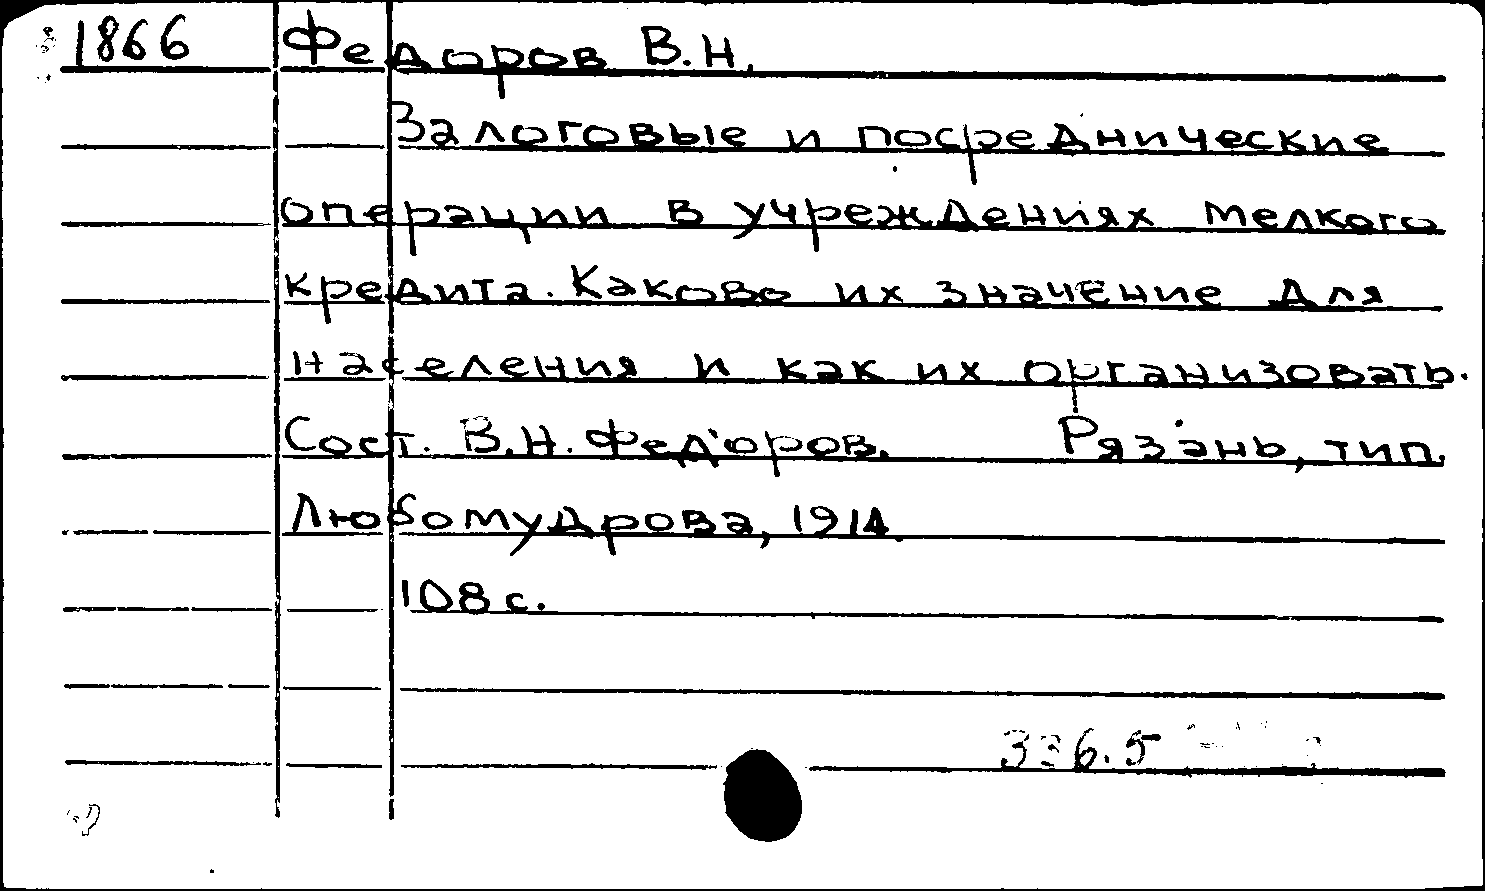 1866 Федоров В.Н.
Залоговые и посреднические
операции в учреждениях мелкого
кредита. Каково их значение для
населения и как их организовать.
Сост. В.Н. Федоров. Рязань, тип.
Любомудрова, 1914.
108 с.
336.5